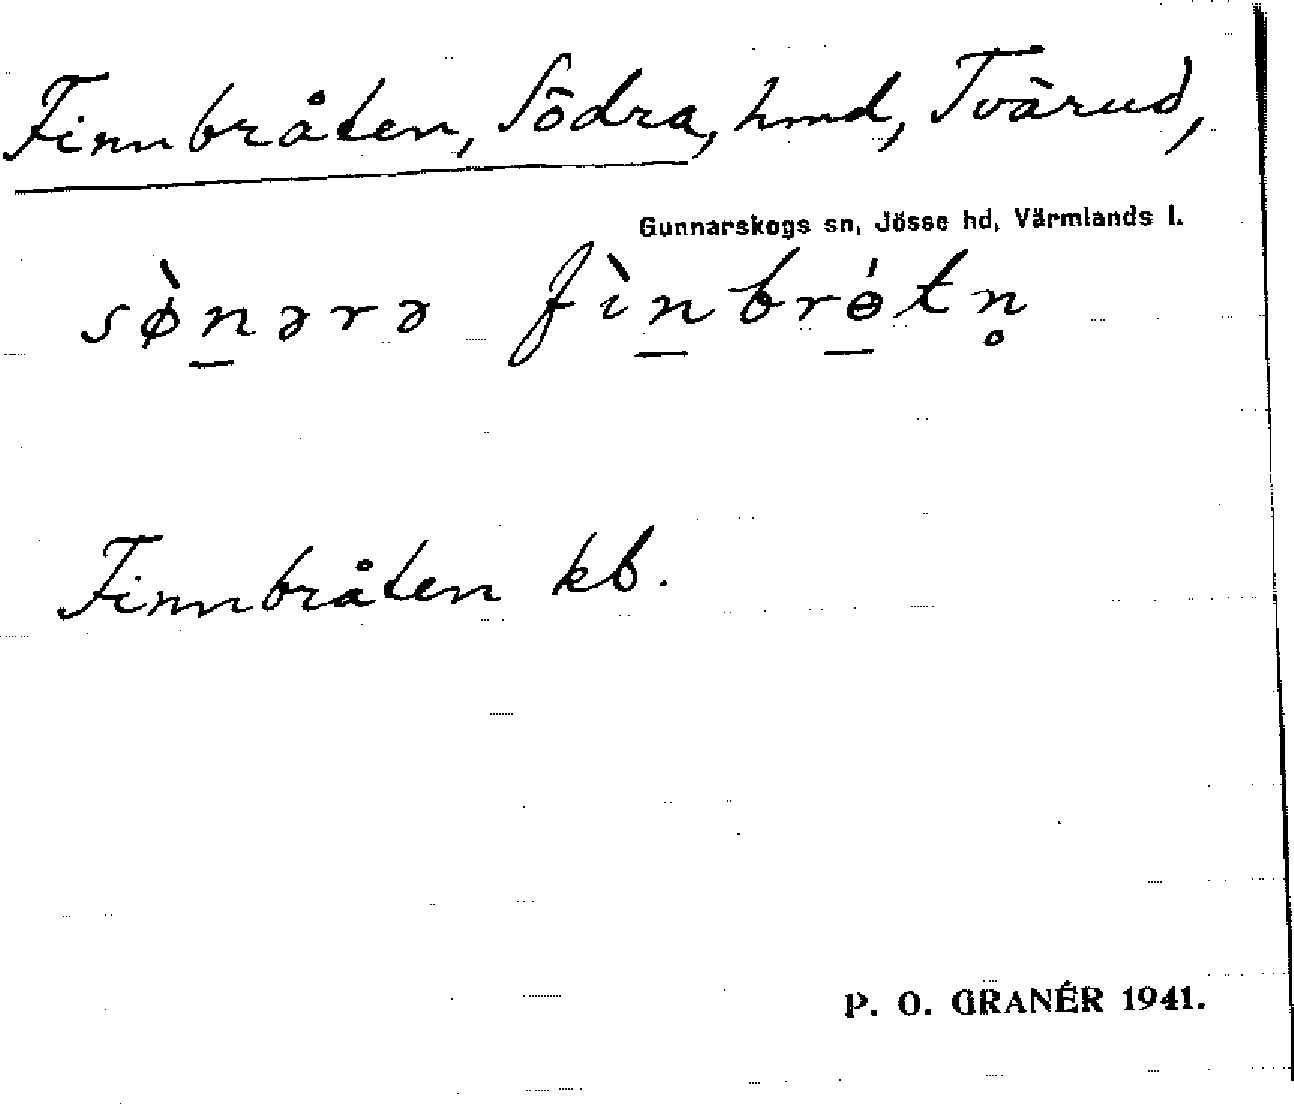 Finnbråten, Södra, hmd, Tvärud,
Gunnarskogs sn, Jösse hd, Värmlands l.
sø̀n̲ərə fìn̲brɵ̲́tn̥
Finnbråten kb.
P. O. GRANÉR 1941.